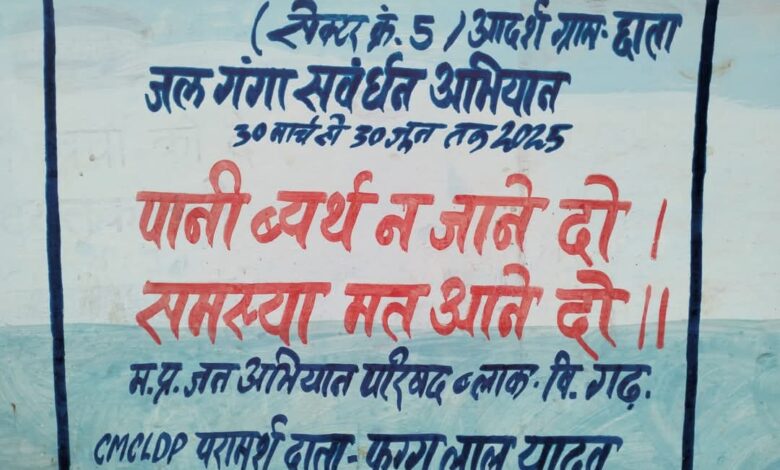 (सेक्टर क्रं. 5) आदर्श ग्राम- छाता
जल गंगा सवंर्धन अभियान
30 मार्च से 30 जून तक 2025
पानी ब्यर्थ न जाने दो ।
समस्या मत आने दो ॥
म.प्र. जन अभियान परिषद ब्लाक- वि. गढ़.
CMCLDP परामर्श दाता- फग्गु लाल यादव